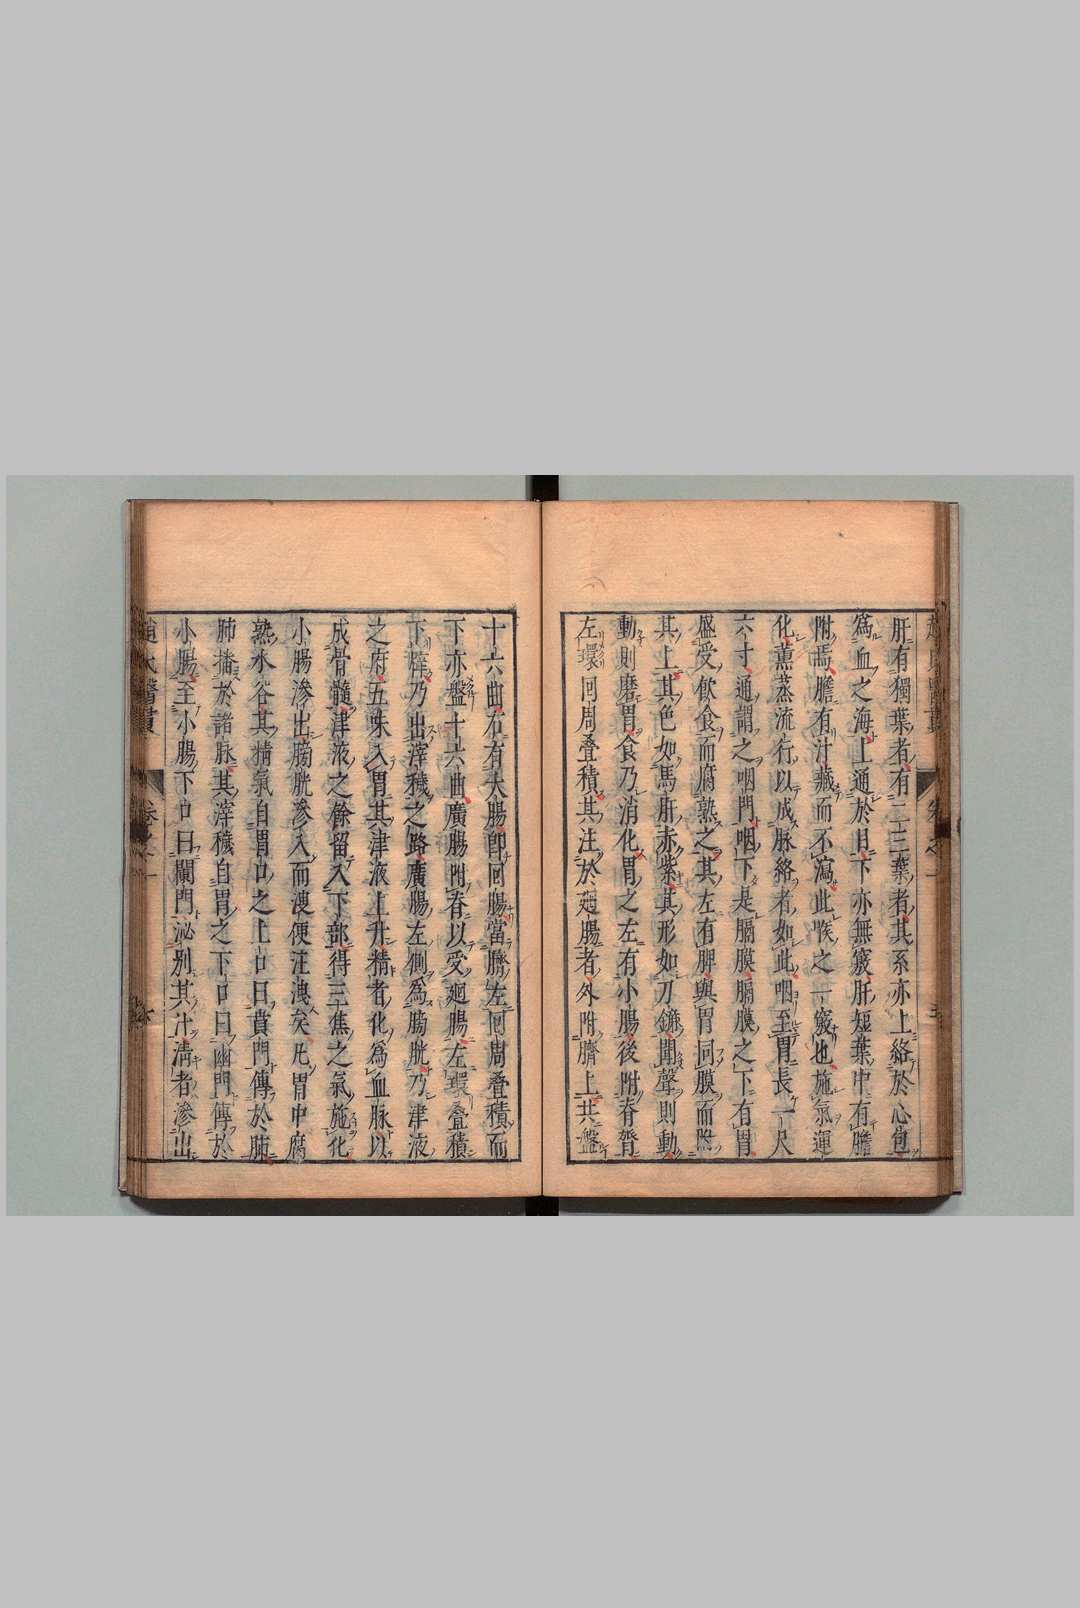 肝有獨葉者有二三葉者其系亦上絡於心包
爲血之海上通於目下亦無竅肝短葉中有膽
附焉膽有汁藏而不瀉此喉之一竅也施氣運
化薰蒸流行以成脉絡者如此咽至胃長一尺
六寸通謂之咽門咽下是膈膜膈膜之下有胃
盛受飲食而腐熟之其左有脾與胃同膜而附
其上其色如馬肝赤紫其形如刀鐮聞聲則動
動則磨胃食乃消化胃之左有小腸後附脊膂
左環囘周叠積其注於廻腸者外附臍上共盤
十六曲右有大腸即囘腸當臍左囘周叠積而
下亦盤十六曲廣腸附脊以受廻腸左環叠積
下辟乃出滓穢之路廣腸左側爲膀胱乃津液
之府五味入胃其津液上升精者化爲血脉以
成骨髓津液之餘留入下部得三焦之氣施化
小腸滲出膀胱滲入而溲便注洩矣凡胃中腐
熟水谷其精氣自胃口之上口曰賁門傳於肺
肺播於諸脉其滓穢自胃之下口曰幽門傳於
小腸至小腸下口曰闌門泌别其汁清者滲出
趙氏醫貫
卷之一